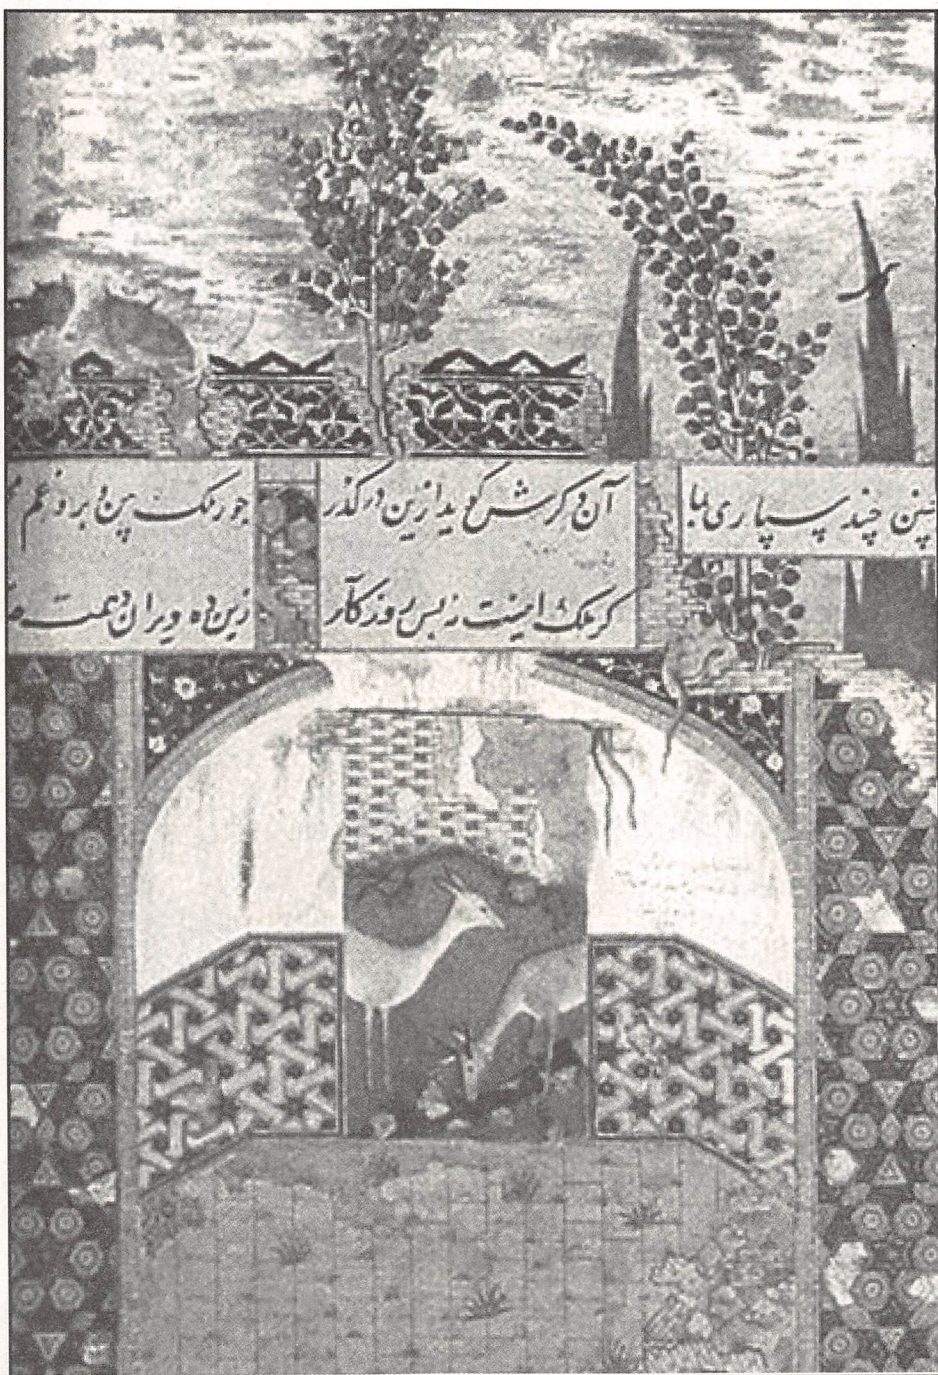 چنین چند سپاری بما آن دگرش گوید ازین در گذر جور ملک بین و برو غم
گر ملک اینست نه بس روزگار زین ده ویران دهمت